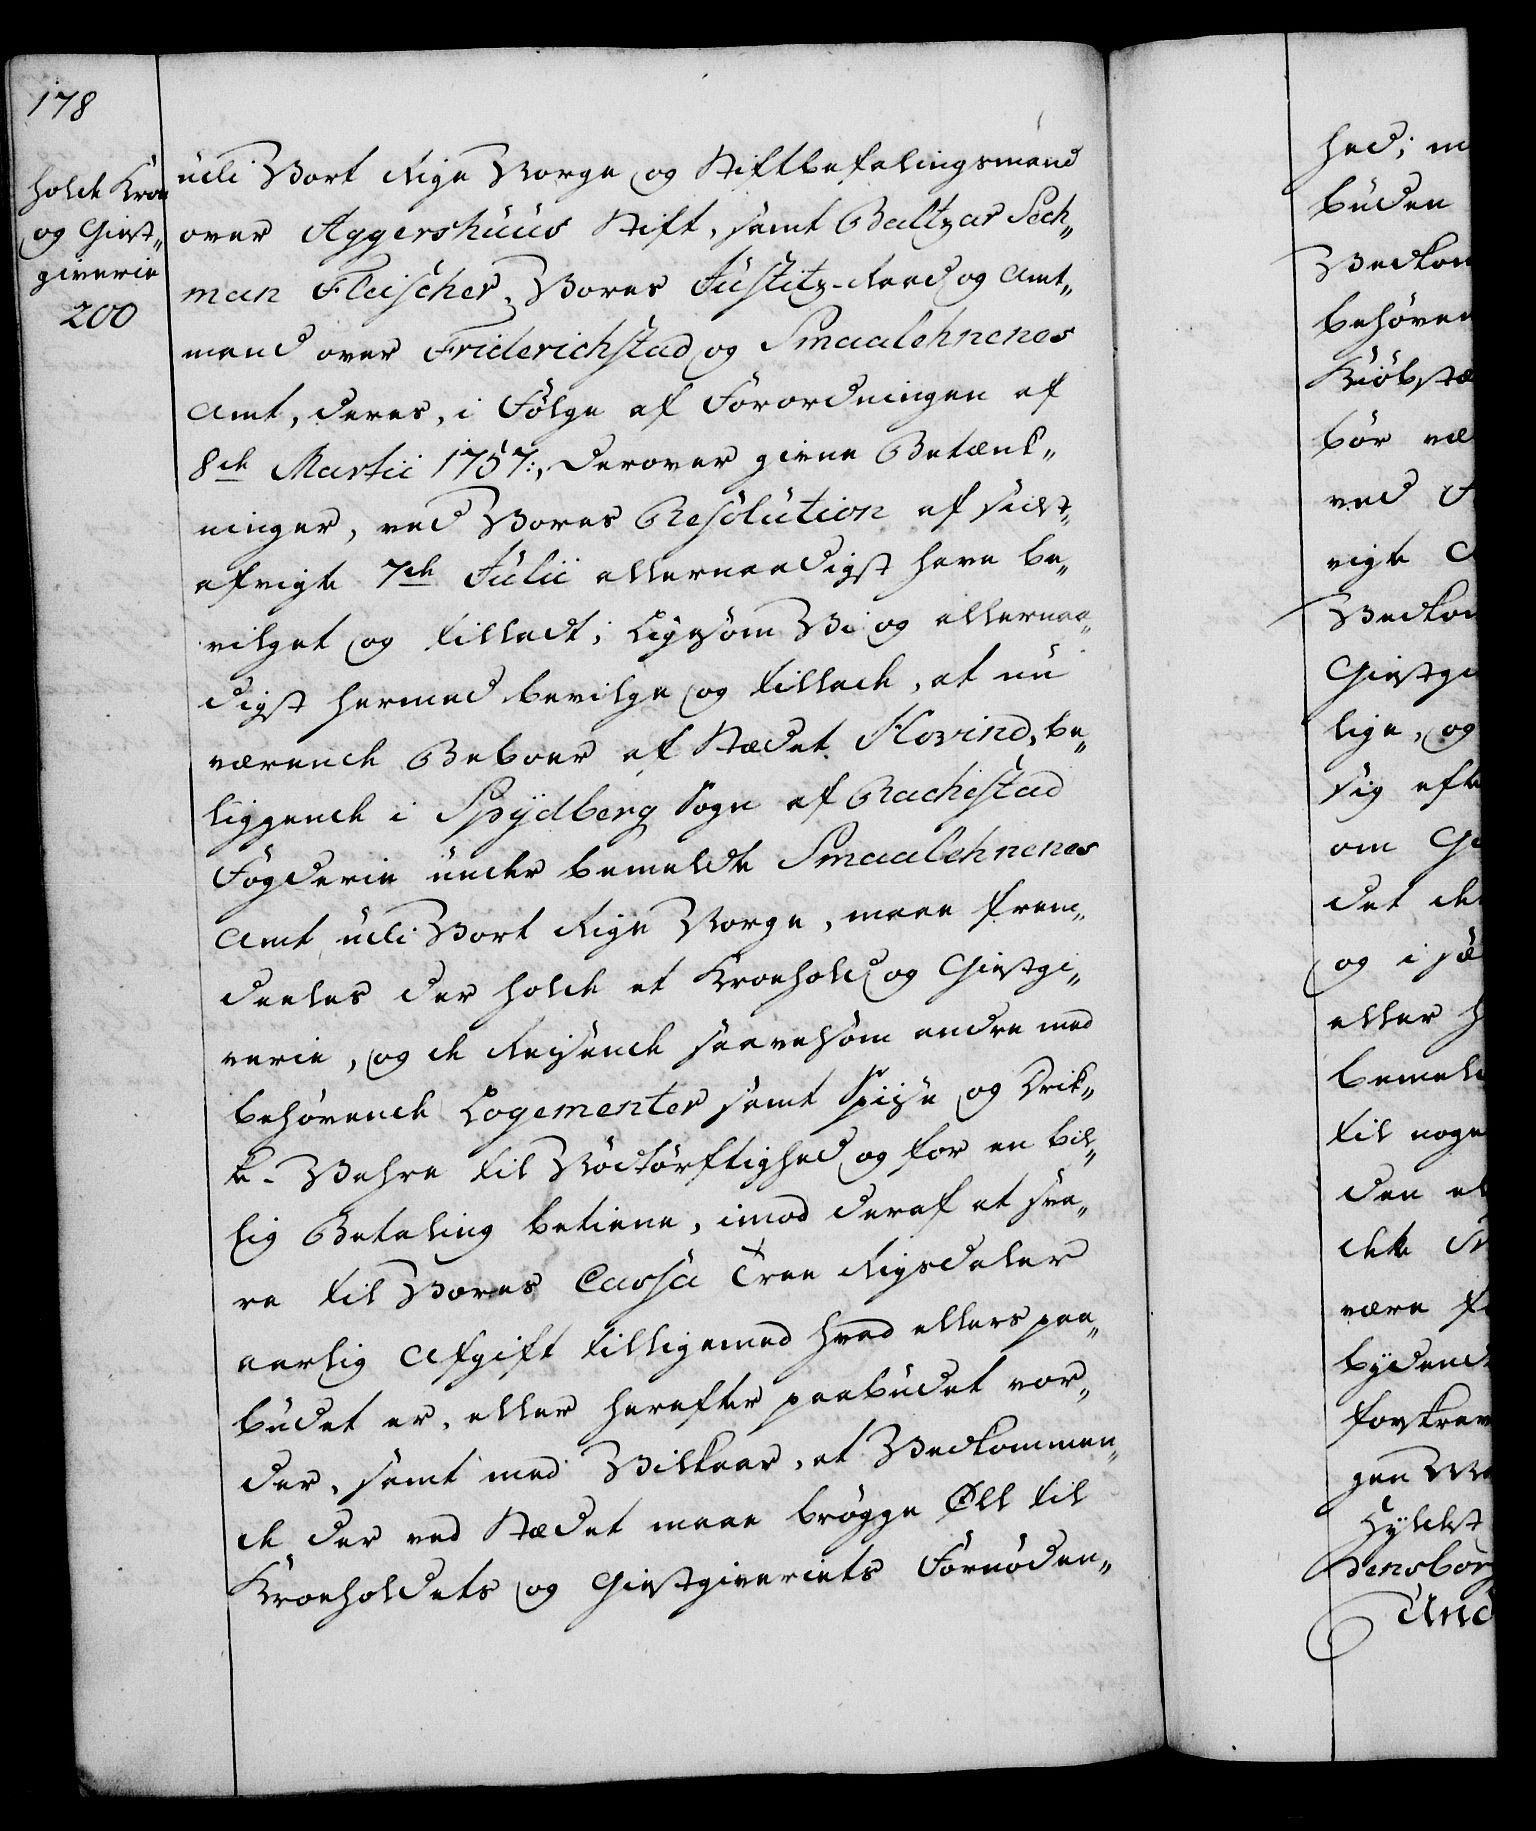 178
holde Kroe
og Giest„
giverie
200
udi Vort Rige Norge og Stiftbefalingsmand
over Aggershuus Stift, samt Baltzar Sech„
man Fleischer, Vores Justitz-Raad og Amt„
mand over Friderichstad og Smaalehnenes
Amt, deres, i Fölge af Forordningen af
8de Martii 1757:, derover givne Betænk„
ninger, ved Vores Resolution af sidst„
afvigte 7de Julii allernaadigst have be„
vilget og tilladt; Ligesom Vi og allernaa„
digst hermed bevilge og tillade, at nu
værende Beboer af Stædet Hovind, be„
liggende i Spydberg Sogn af Rachestad
Fogderie under bemeldte Smaalehnenes
Amt udi Vort Rige Norge, maae frem„
deeles der holde et Kroehold og Giestgi„
verie, og de Reisende saavelsom andre med
behøvende Logementer samt Spise og Drik„
ke-Vahre til Nödtörftighed og for en bil„
lig Betaling betiene, imod deraf at sva„
re til Vores Cassa Tree Rigsdaler
aarlig Afgift tilligemed hvad ellers paa„
budet er, eller herefter paabudet vor„
der, samt med Vilkaar, at Vedkommen„
de der ved Stædet maae brøgge Øll til
Kroeholdets og Giestgiveriets Fornöden„
hed; m
buden
Vedkom
behøven
Kiöbstæ
bör væ
ved F
vigte
Vedkom
Giestgi
lige, og
sig efte
om Gi
det de
og i sæ
eller h
bemeld
til noge
den el
dette
være f
bydend
forskrev
gen
Hyldest
densborg
Und